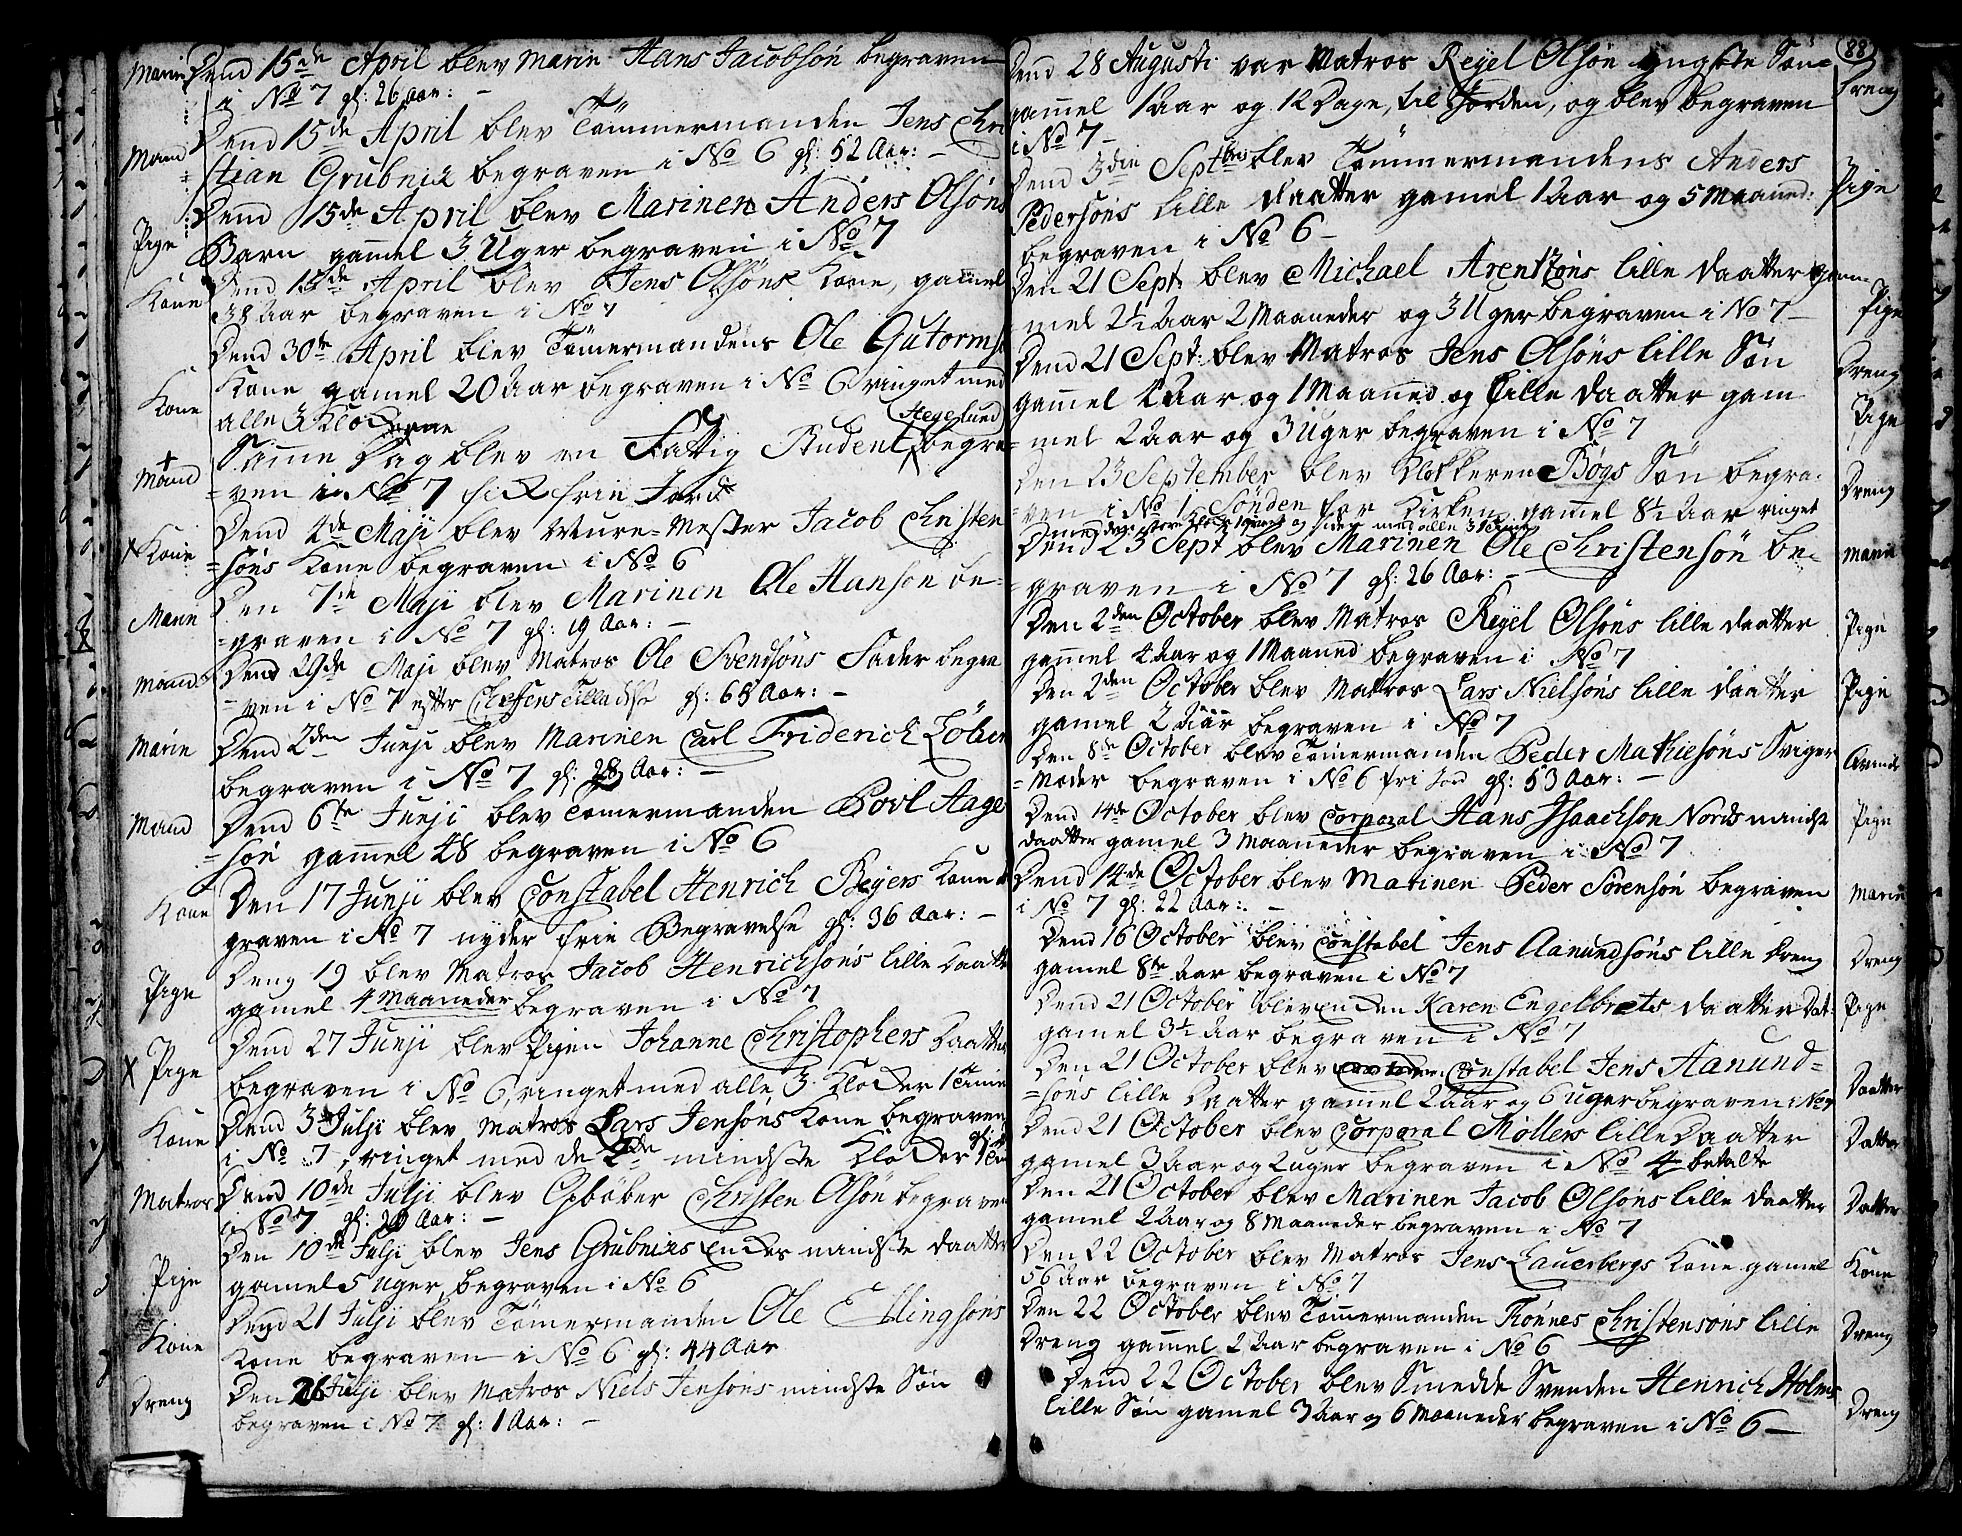 Marin Dend 15de April blev Marin Hans Jacobsön begraven
i No 7 gl: 26 Aar: –
Dend 15de April blev Tömmermanden Jens Chri
Mand stian Grubnix begraven i No 6 gl: 52 Aar: –
Dend 15de April blev Marinen Anders Olsöns
Pige Barn gamel 3 Uger begraven i No 7
Kone Dend 15de April blev Jens Olsöns Kone, gamel
38 Aar begraven i No 7
Dend 30te April blev Tömermandens Ole Gutorms
Kone Kone gamel 20 Aar begraven i No 6 ringet med
alle 3 Klockerne
Hegelund
Mand Samme Dag blev en Fattig Student begra
=ven i No 7 fick frie Jord
Dend 4de Maji blev Mure=Mester Jacob Christen
Kone =söns Kone begraven i No 6
Den 7de Maji blev Marinen Ole Hanson be=
Marin =graven i No 7 gl: 19 Aar: –
Dend 29de Maji blev Matros Ole Svendsöns Fader begra
Mand =ven i No 7 efter Cheffens Tilladelse gl: 68 Aar: –
Marin Dend 2den Junji blev Marinen Carl Friderich Löber
begraven i No 7 gl: 28 Aar: –
Mand Dend 6te Junji blev Tömermanden Povl Aage
=sön gammel 48 begraven i No 6
Kone Den 17 Junji blev Constabel Henrich Beyers Kone be
graven i No 7 nyder frie Begravelse gl: 36 Aar: –
Dend 19 blev Matros Jacob Henrichsöns lille Daatter
Pige gamel 4 Maaneder begraven i No 7
Dend 27 Junji blev Pigen Johanne Christophers Daatter
Pige begraven i No 6, ringet med alle 3 Klocker 1 Time
Kone Dend 3de Julji blev Matros Lars Jensöns Kone begraven
i No 7, ringet med de 2de mindste Klocker 1 Time
Matros Dend 10de Julji blev Christen Olsön begraven
i No 7 gl: 20 Aar: –
Den 10de Julji blev Jens Grubnixs Enckes mindste Daatter
Pige gamel 5 Uger, begraven i No 6
Dend 21 Julji blev Tömermanden Ole Ellingsöns
Kone Kone begraven i No 6 gl: 44 Aar
Dreng Den 26 Julji blev Matros Niels Jensöns mindste Sön
begraven i No 7 gl: 1 Aar: –
88
Dend 28 Augusti var Matros Reyel Olsön yngste Sön= Dreng
gamel 1 Aar og 12 Dage, til Jorden, og blev begraven
i No 7 –
Dend 3die Septbris blev Tömmermandens Anders
Pedersöns lille Daatter gamel 1 Aar og 5 Maaned: Pige
begraven i No 6 –
Den 21 Sept. blev Michael Arentzöns lille Daatter gam
=mel 2½ Aar 2 Maaneder og 3 Uger begraven i No 7 – Pige
Dend 21 Sept: blev Matros Jens Olsöns lille Sön Dreng
gammel 4 Aar og 1 Maaned og Lille Daatter gam Pige
=mel 2 Aar og 3 Uger begraven i No 7
Den 23 September blev Klokkeren Bögs Sön begra= Dreng
=ven i No 1, Sönden for Kirken gammel 8½ Aar ringet
med den store Klok 1 qvart og siden med alle 3 1 Time
Dend 23 Sept blev Marinen Ole Christensön be= Marin
=graven i No 7 gl: 26 Aar: –
Den 2den October blev Matros Reyel Olsöns lille Daatter Pige
gamel 4 Aar og 1 Maaned begraven i No 7
Den 2den October blev Matros Lars Nielsöns lille Daatter Pige
gamel 2 Aar begraven i No 7
Den 8de October blev Tömermanden Peder Mathiesöns Sviger
=Moder begraven i No 6 fri Jord gl: 53 Aar: –
Dend 14de October blev Corporal Hans Isaachson Nords mindste Pige
daatter gamel 3 Maaneder begraven i No 7
Dend 14de October blev Marinen Peder Sörensön begraven Marin
i No 7 gl: 22 Aar: –
Dend 16 October blev Constabel Jens Aanundsöns lille Dreng Dreng
gamel 8te Aar begraven i No 7
Dend 21 October blev Encken Karen Engelbrets daatter Dat: Pige
gamel 3½ Aar begraven i No 7
Den 21 October blev Constabel Jens Aanund=
=söns lille Daatter gamel 2 Aar og 6 uger begraven i No 7 Daatter
Dend 21 October blev Corporal Möllers lille Daatter Datter
gamel 3 Aar og 2 uger begraven i No 4 betalte
Den 21 October blev Marinen Jacob Olsöns lille Daatter Datter
gamel 2 Aar og 8 Maaneder begraven i No 7
Den 22 October blev Matros Jens Lauerbergs Kone gamel Kone
56 Aar begraven i No 7
Den 22 October blev Tömermanden Thönnes Christensöns lille Dreng
Dreng gammel 2 Aar begraven i No 6
Dend 22 October blev Smedde Svenden Henrich Holms
lille Sön gamel 3 Aar og 6 Maaneder begraven i No 6 – Dreng